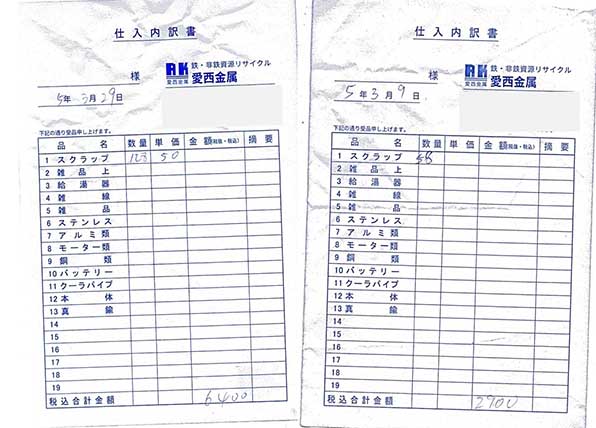 仕入内訳書
様
AK 鉄・非鉄資源リサイクル
愛西金属 愛西金属
5年3月29日
下記の通り受品申し上げます。
品名 数量 単価 金額(税抜・税込) 摘要
1 スクラップ 128 50
2 雑品上
3 給湯器
4 雑線
5 雑品
6 ステンレス
7 アルミ類
8 モーター類
9 銅類
10 バッテリー
11 クーラパイプ
12 本体
13 真鍮
14
15
16
17
18
19
税込合計金額 6400
仕入内訳書
様
AK 鉄・非鉄資源リサイクル
愛西金属 愛西金属
5年3月9日
下記の通り受品申し上げます。
品名 数量 単価 金額(税抜・税込) 摘要
1 スクラップ 58
2 雑品上
3 給湯器
4 雑線
5 雑品
6 ステンレス
7 アルミ類
8 モーター類
9 銅類
10 バッテリー
11 クーラパイプ
12 本体
13 真鍮
14
15
16
17
18
19
税込合計金額 2900